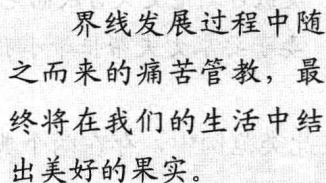 界线发展过程中随
之而来的痛苦管教，最
终将在我们的生活中结
出美好的果实。